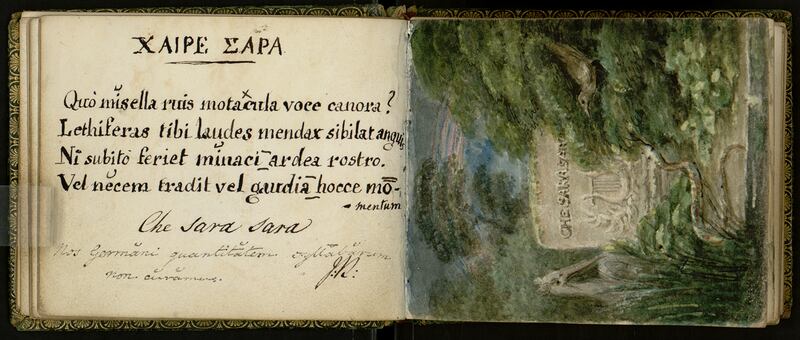 ΧΑΙΡΕ ΣΑΡΑ
Quò misella ruis motacula voce canora?
Lethiferas tibi laudes mendax sibilat anguis
Ni subitò feriet minaci ardea rostro.
Vel necem tradit vel gaudia hocce mō-
-mentum
Che sara sara
Nos Germāni quantitātem syllabārum
non cūrāmus.
J:R:
CHE SARA SARA